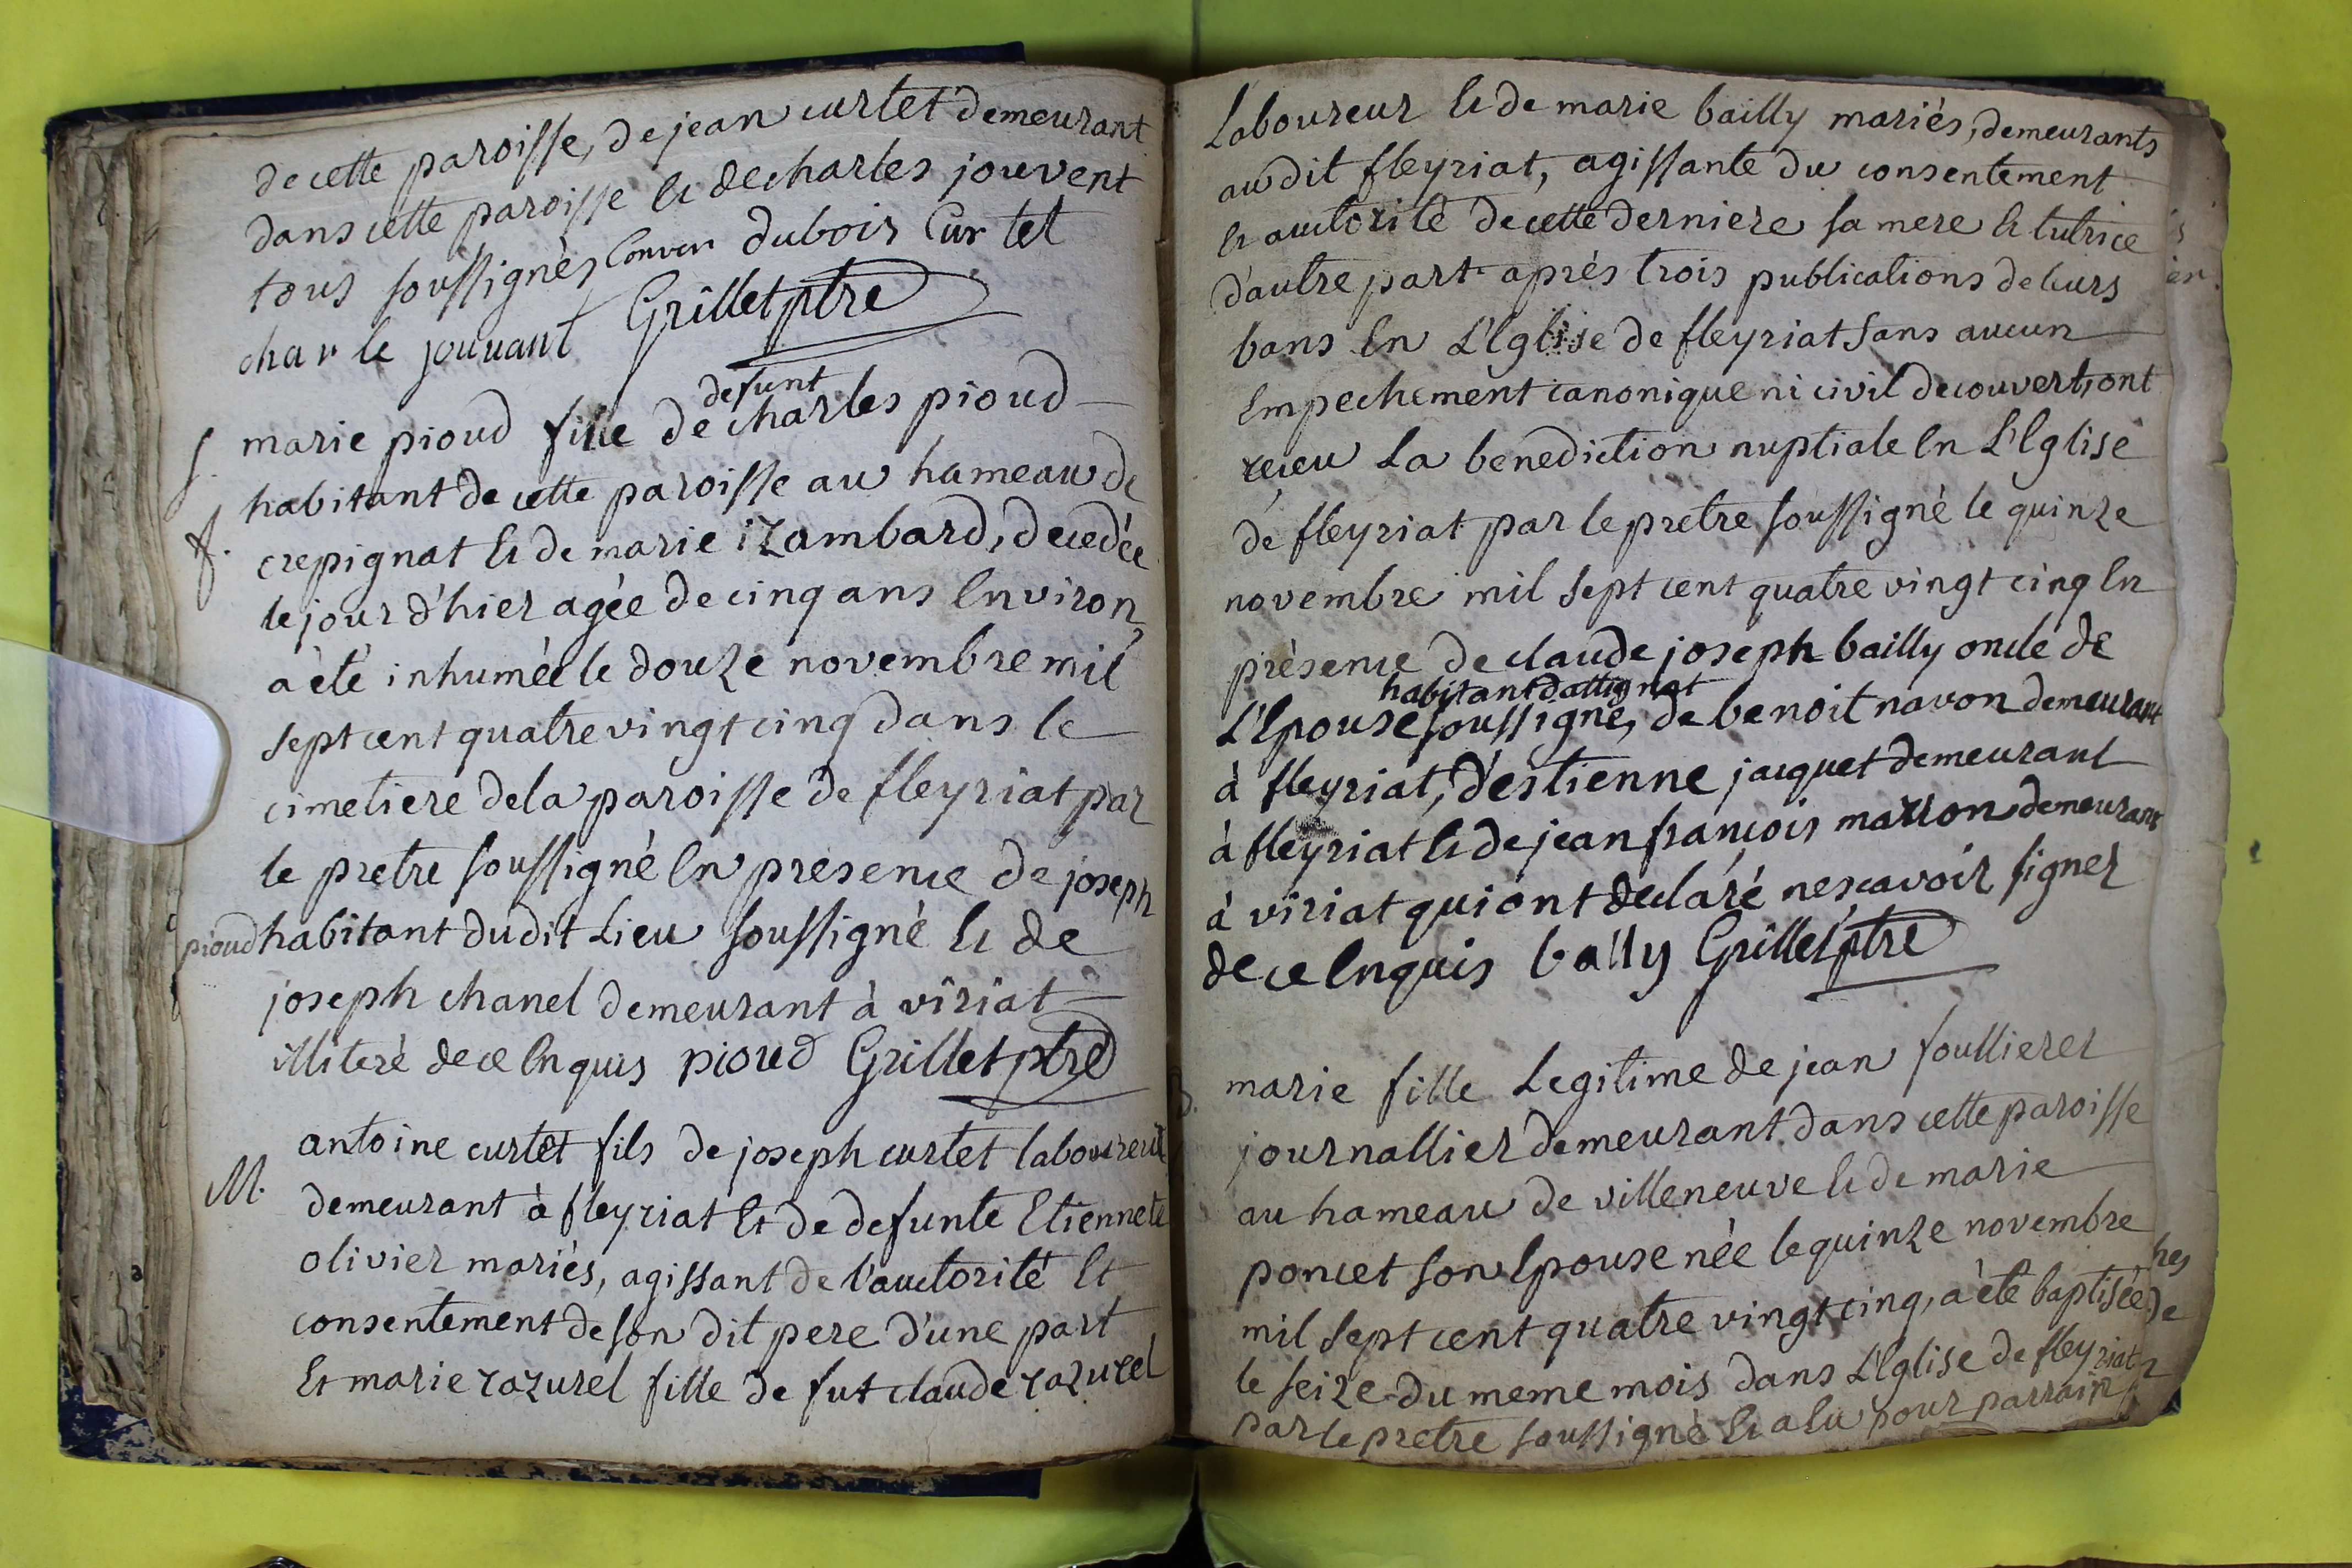 de cette paroisse, de jean curtet demeurant
dans cette paroisse et de charles jouvent
tous soussignés dubois Curtet
char le jouvant Grillet ptre
defunt
S. marie pioud fille de charles pioud
habitant de cette paroisse au hameau de
crepignat et de marie izambard, decedée
le jour d'hier agée de cinq ans environ
a été inhumée le douze novembre mil
sept cent quatre vingt cinq dans le
cimetiere de la paroisse de fleyriat par
le pretre soussigné en presence de joseph
pioud habitant dudit Lieu soussigné et de
joseph chanel demeurant à viriat
illiteré de ce enquis pioud Grillet ptre
antoine curtet fils de joseph curtet laboureur
M. demeurant à fleyriat Et de defunte Etiennete
olivier mariés, agissant de l'auctorité Et
consentement de son dit pere d'une part
Et marie razurel fille de fut claude razurel
Laboureur et de marie bailly mariés, demeurants
au dit fleyriat, agissante du consentement
et auctorité de cette derniere sa mere et tutrice
d'autre part aprés trois publications de leurs
bans en L'Eglise de fleyriat sans aucun
empechement canonique ni civil decouvert, ont
receu La benediction nuptiale en L'Eglise
de fleyriat par le pretre soussigné le quinze
novembre mil sept cent quatre vingt cinq en
présence de claude joseph bailly oncle de
habitant d'attignat
L'Epouse soussigné, de benoit navon demeurant
à fleyriat, d'estienne jacquet demeurant
à fleyriat et de jean francois marron demeurant
à viriat qui ont declaré ne scavoir signer
de ce enquis bally Grillet ptre
marie fille Legitime de jean foullierer
journallier demeurant dans cette paroisse
au hameau de villeneuve et de marie
poncet son epouse née le quinze novembre
mil sept cent quatre vingt cinq, a été baptisée
le seize du meme mois dans L'Eglise de fleyriat
par le pretre soussigné et a eu pour parrain